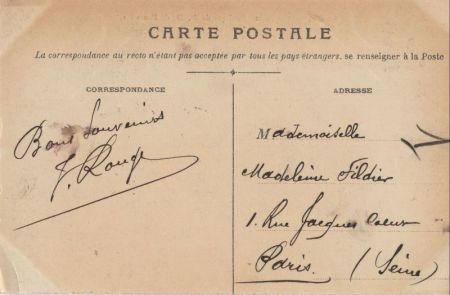 CARTE POSTALE
La correspondance au recto n'étant pas acceptée par tous les pays étrangers, se renseigner à la Poste
CORRESPONDANCE
ADRESSE
Bons Souvenirs
Mademoiselle
Madeleine Fildier
1. Rue Jacques Coeur
Paris. (Seine)